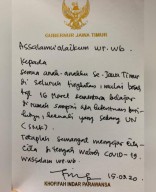 GUBERNUR JAWA TIMUR
Assalamu'alaikum wr.wb.
Kepada
Semua anak-anakku Se-Jawa Timur
Di seluruh tingkatan, mulai besok
tgl 16 Maret sementara belajar
di rumah sampai ada ketentuan
berikutnya, kecuali yang sedang UN
(SMK).
Tetaplah semangat mengejar cita-
cita di tengah wabah COVID-19.
Wassalam wr.wb.
15-03.20
KHOFIFAH INDAR PARAWANSA